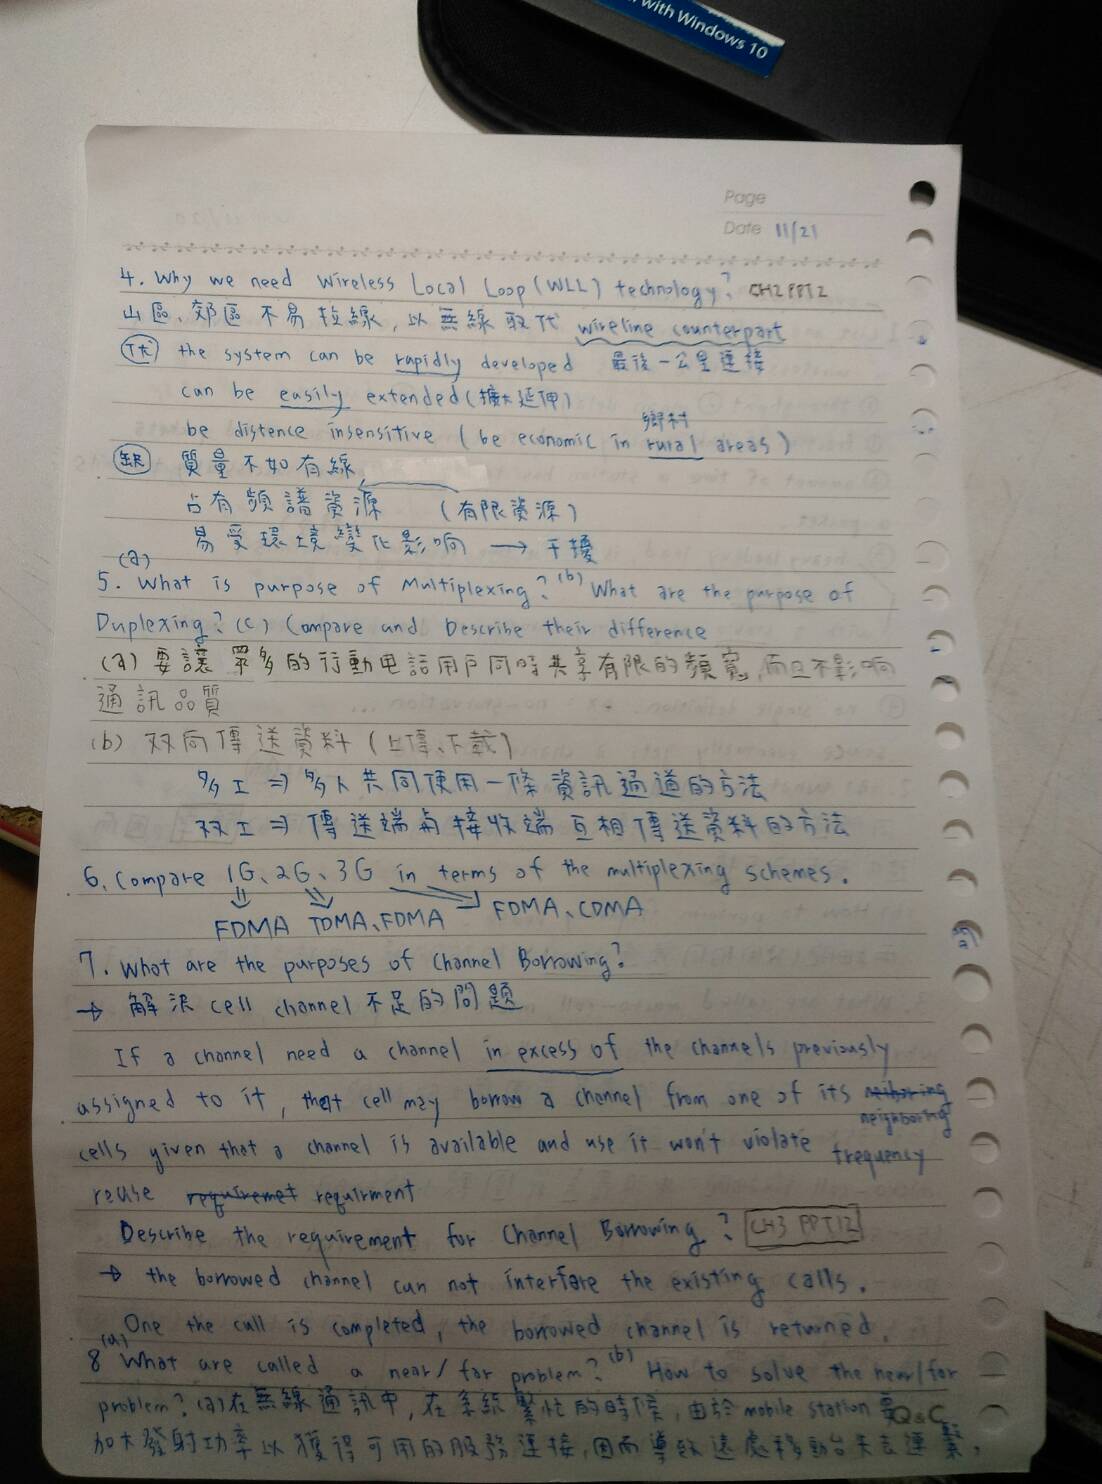 with Windows 10
Page
Date 11/21
4. Why we need Wireless Local Loop (WLL) technology? CH2 PPT2
山區、郊區不易拉線, 以無線取代 wireline counterpart
優 the system can be rapidly developed 最後一公里連接
can be easily extended (擴大延伸)
鄉村
be distence insensitive (be economic in rural areas)
缺 質量不如有線
占有頻譜資源 (有限資源)
易受環境變化影响 → 干擾
(a)
5. What is purpose of Multiplexing? (b) What are the purpose of
Duplexing? (c) Compare and Describe their difference
(a) 要讓眾多的行動电話用戶同時共享有限的頻寬, 而且不影响
通訊品質
(b) 双向傳送資料 (上傳、下載)
多工 ⇒ 多人共同使用一條資訊通道的方法
双工 ⇒ 傳送端與接收端互相傳送資料的方法
6. Compare 1G、2G、3G in terms of the multiplexing schemes.
FDMA TDMA、FDMA FDMA、CDMA
7. What are the purposes of Channel Borrowing?
→ 解決 cell channel 不足的問題
If a channel need a channel in excess of the channels previously
assigned to it, that cell may borrow a channel from one of its
neighboring
cells given that a channel is available and use it won't violate frequency
reuse requiremet requirment
Describe the requirement for Channel Borrowing? CH3 PPT12
→ the borrowed channel can not interfare the existing calls.
One the call is completed, the borrowed channel is returned.
(a)
8 What are called a near/far problem? (b) How to solve the near/far
problem? (a) 在無線通訊中, 在系統繁忙的時候, 由於 mobile station 要
Q&C
加大發射功率以獲得可用的服務連接, 因而導致遠處移動台失去連繫,